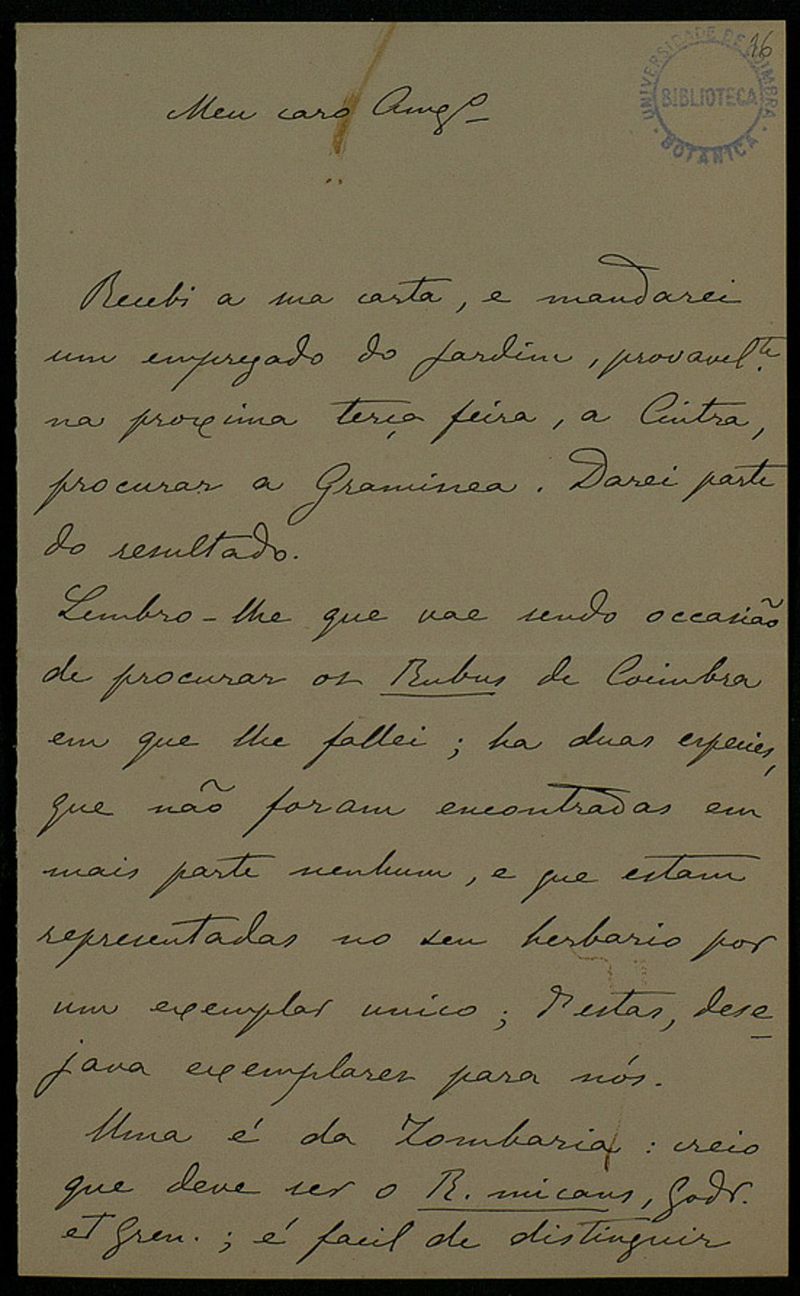 16
UNIVERSIDADE DE COIMBRA
BIBLIOTECA
BOTANICA
Meu caro Amgº
Recebi a sua carta, e mandarei
um empregado do Jardim, provavel.te
na proxima terça feira, a Cintra,
procurar a Graminea. Darei parte
do resultado.
Lembro-lhe que vae sendo occasião
de procurar os Rubus de Coimbra
em que lhe fallei; ha duas especies,
que não foram encontradas em
mais parte nenhum, e que estam
representadas no seu herbario por
um exemplar unico; d'estas, dese
java exemplares para nós.
Uma é da Zombaria: creio
que deve ser o R. micans, Godr.
et Gren.; é facil de distinguir